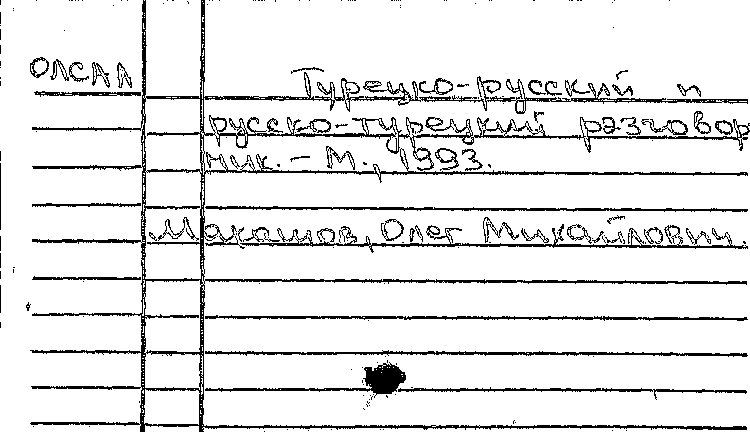 ОЛСАА
Турецко-русский и
русско-турецкий разговор
ник. - М., 1993.
Макашов, Олег Михайлович.